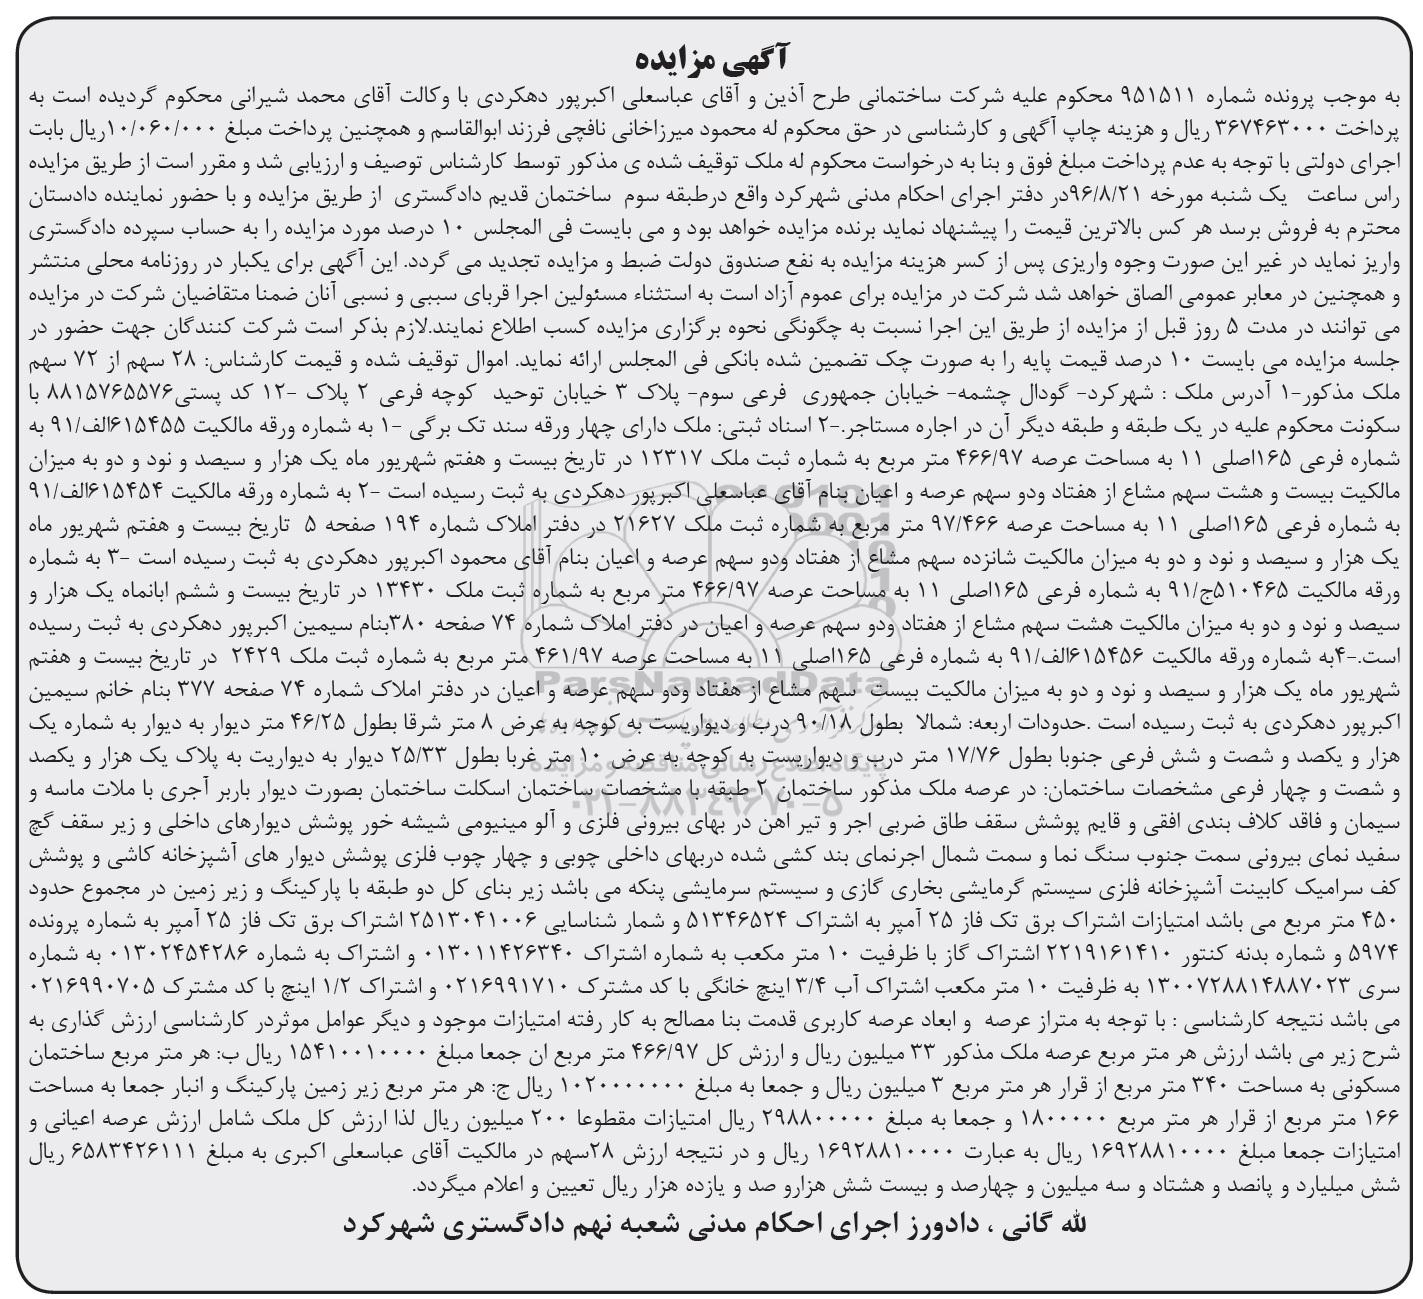 آگهی مزایده
به موجب پرونده شماره ۹۵۱۵۱۱ محکوم علیه شرکت ساختمانی طرح آذین و آقای عباسعلی اکبرپور دهکردی با وکالت آقای محمد شیرانی محکوم گردیده است به
پرداخت ۳۶۷۴۶۳۰۰۰ ریال و هزینه چاپ آگهی و کارشناسی در حق محکوم له محمود میرزاخانی نافچی فرزند ابوالقاسم و همچنین پرداخت مبلغ ۱۰/۰۶۰/۰۰۰ریال بابت
اجرای دولتی با توجه به عدم پرداخت مبلغ فوق و بنا به درخواست محکوم له ملک توقیف شده ی مذکور توسط کارشناس توصیف و ارزیابی شد و مقرر است از طریق مزایده
راس ساعت یک شنبه مورخه ۹۶/۸/۲۱در دفتر اجرای احکام مدنی شهرکرد واقع درطبقه سوم ساختمان قدیم دادگستری از طریق مزایده و با حضور نماینده دادستان
محترم به فروش برسد هر کس بالاترین قیمت را پیشنهاد نماید برنده مزایده خواهد بود و می بایست فی المجلس ۱۰ درصد مورد مزایده را به حساب سپرده دادگستری
واریز نماید در غیر این صورت وجوه واریزی پس از کسر هزینه مزایده به نفع صندوق دولت ضبط و مزایده تجدید می گردد. این آگهی برای یکبار در روزنامه محلی منتشر
و همچنین در معابر عمومی الصاق خواهد شد شرکت در مزایده برای عموم آزاد است به استثناء مسئولین اجرا قربای سببی و نسبی آنان ضمنا متقاضیان شرکت در مزایده
می توانند در مدت ۵ روز قبل از مزایده از طریق این اجرا نسبت به چگونگی نحوه برگزاری مزایده کسب اطلاع نمایند.لازم بذکر است شرکت کنندگان جهت حضور در
جلسه مزایده می بایست ۱۰ درصد قیمت پایه را به صورت چک تضمین شده بانکی فی المجلس ارائه نماید. اموال توقیف شده و قیمت کارشناس: ۲۸ سهم از ۷۲ سهم
ملک مذکور-۱ آدرس ملک : شهرکرد- گودال چشمه- خیابان جمهوری فرعی سوم- پلاک ۳ خیابان توحید کوچه فرعی ۲ پلاک -۱۲ کد پستی۸۸۱۵۷۶۵۵۷۶ با
سکونت محکوم علیه در یک طبقه و طبقه دیگر آن در اجاره مستاجر.-۲ اسناد ثبتی: ملک دارای چهار ورقه سند تک برگی -۱ به شماره ورقه مالکیت ۶۱۵۴۵۵الف/۹۱ به
شماره فرعی ۱۶۵اصلی ۱۱ به مساحت عرصه ۴۶۶/۹۷ متر مربع به شماره ثبت ملک ۱۲۳۱۷ در تاریخ بیست و هفتم شهریور ماه یک هزار و سیصد و نود و دو به میزان
مالکیت بیست و هشت سهم مشاع از هفتاد ودو سهم عرصه و اعیان بنام آقای عباسعلی اکبرپور دهکردی به ثبت رسیده است -۲ به شماره ورقه مالکیت ۶۱۵۴۵۴الف/۹۱
به شماره فرعی ۱۶۵اصلی ۱۱ به مساحت عرصه ۹۷/۴۶۶ متر مربع به شماره ثبت ملک ۲۱۶۲۷ در دفتر املاک شماره ۱۹۴ صفحه ۵ تاریخ بیست و هفتم شهریور ماه
یک هزار و سیصد و نود و دو به میزان مالکیت شانزده سهم مشاع از هفتاد ودو سهم عرصه و اعیان بنام آقای محمود اکبرپور دهکردی به ثبت رسیده است -۳ به شماره
ورقه مالکیت ۵۱۰۴۶۵ج/۹۱ به شماره فرعی ۱۶۵اصلی ۱۱ به مساحت عرصه ۴۶۶/۹۷ متر مربع به شماره ثبت ملک ۱۳۴۳۰ در تاریخ بیست و ششم ابانماه یک هزار و
سیصد و نود و دو به میزان مالکیت هشت سهم مشاع از هفتاد ودو سهم عرصه و اعیان در دفتر املاک شماره ۷۴ صفحه ۳۸۰بنام سیمین اکبرپور دهکردی به ثبت رسیده
است.-۴به شماره ورقه مالکیت ۶۱۵۴۵۶الف/۹۱ به شماره فرعی ۱۶۵اصلی ۱۱ به مساحت عرصه ۴۶۱/۹۷ متر مربع به شماره ثبت ملک ۲۴۲۹ در تاریخ بیست و هفتم
شهریور ماه یک هزار و سیصد و نود و دو به میزان مالکیت بیست سهم مشاع از هفتاد ودو سهم عرصه و اعیان در دفتر املاک شماره ۷۴ صفحه ۳۷۷ بنام خانم سیمین
اکبرپور دهکردی به ثبت رسیده است .حدودات اربعه: شمالا بطول ۹۰/۱۸ درب و دیواریست به کوچه به عرض ۸ متر شرقا بطول ۴۶/۲۵ متر دیوار به دیوار به شماره یک
هزار و یکصد و شصت و شش فرعی جنوبا بطول ۱۷/۷۶ متر درب و دیواریست به کوچه به عرض ۱۰ متر غربا بطول ۲۵/۳۳ دیوار به دیواریت به پلاک یک هزار و یکصد
و شصت و چهار فرعی مشخصات ساختمان: در عرصه ملک مذکور ساختمان ۲ طبقه با مشخصات ساختمان اسکلت ساختمان بصورت دیوار باربر آجری با ملات ماسه و
سیمان و فاقد کلاف بندی افقی و قایم پوشش سقف طاق ضربی اجر و تیر اهن در بهای بیرونی فلزی و آلو مینیومی شیشه خور پوشش دیوارهای داخلی و زیر سقف گچ
سفید نمای بیرونی سمت جنوب سنگ نما و سمت شمال اجرنمای بند کشی شده دربهای داخلی چوبی و چهار چوب فلزی پوشش دیوار های آشپزخانه کاشی و پوشش
کف سرامیک کابینت آشپزخانه فلزی سیستم گرمایشی بخاری گازی و سیستم سرمایشی پنکه می باشد زیر بنای کل دو طبقه با پارکینگ و زیر زمین در مجموع حدود
۴۵۰ متر مربع می باشد امتیازات اشتراک برق تک فاز ۲۵ آمپر به اشتراک ۵۱۳۴۶۵۲۴ و شمار شناسایی ۲۵۱۳۰۴۱۰۰۶ اشتراک برق تک فاز ۲۵ آمپر به شماره پرونده
۵۹۷۴ و شماره بدنه کنتور ۲۲۱۹۱۶۱۴۱۰ اشتراک گاز با ظرفیت ۱۰ متر مکعب به شماره اشتراک ۰۱۳۰۱۱۴۲۶۳۴۰ و اشتراک به شماره ۰۱۳۰۲۴۵۴۲۸۶ به شماره
سری ۱۳۰۰۷۲۸۸۱۴۸۸۷۰۲۳ به ظرفیت ۱۰ متر مکعب اشتراک آب ۳/۴ اینچ خانگی با کد مشترک ۰۲۱۶۹۹۱۷۱۰ و اشتراک ۱/۲ اینچ با کد مشترک ۰۲۱۶۹۹۰۷۰۵
می باشد نتیجه کارشناسی : با توجه به متراز عرصه و ابعاد عرصه کاربری قدمت بنا مصالح به کار رفته امتیازات موجود و دیگر عوامل موثردر کارشناسی ارزش گذاری به
شرح زیر می باشد ارزش هر متر مربع عرصه ملک مذکور ۳۳ میلیون ریال و ارزش کل ۴۶۶/۹۷ متر مربع ان جمعا مبلغ ۱۵۴۱۰۰۱۰۰۰۰ ریال ب: هر متر مربع ساختمان
مسکونی به مساحت ۳۴۰ متر مربع از قرار هر متر مربع ۳ میلیون ریال و جمعا به مبلغ ۱۰۲۰۰۰۰۰۰۰ ریال ج: هر متر مربع زیر زمین پارکینگ و انبار جمعا به مساحت
۱۶۶ متر مربع از قرار هر متر مربع ۱۸۰۰۰۰۰ و جمعا به مبلغ ۲۹۸۸۰۰۰۰۰ ریال امتیازات مقطوعا ۲۰۰ میلیون ریال لذا ارزش کل ملک شامل ارزش عرصه اعیانی و
امتیازات جمعا مبلغ ۱۶۹۲۸۸۱۰۰۰۰ ریال به عبارت ۱۶۹۲۸۸۱۰۰۰۰ ریال و در نتیجه ارزش ۲۸سهم در مالکیت آقای عباسعلی اکبری به مبلغ ۶۵۸۳۴۲۶۱۱۱ ریال
شش میلیارد و پانصد و هشتاد و سه میلیون و چهارصد و بیست شش هزارو صد و یازده هزار ریال تعیین و اعلام میگردد.
لله گانی ، دادورز اجرای احکام مدنی شعبه نهم دادگستری شهرکرد
ParsNamadData
پایگاه اطلاع رسانی مناقصه و مزایده
۰۲۱-۸۸۳۴۹۶۷۰-۵